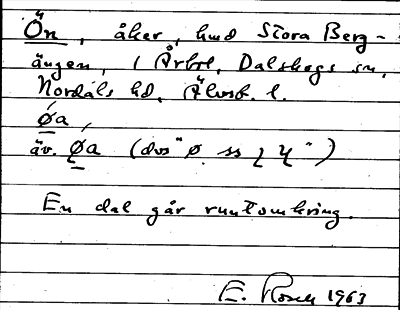 Ön, åker, hmd Stora Berg-
ängen, i Årbol, Dalskogs sn,
Nordals hd, Älvsb. l.
ǿa,
äv. ǿa (dvs "ø. ss
En dal går runtomkring.
E. Rosell 1963